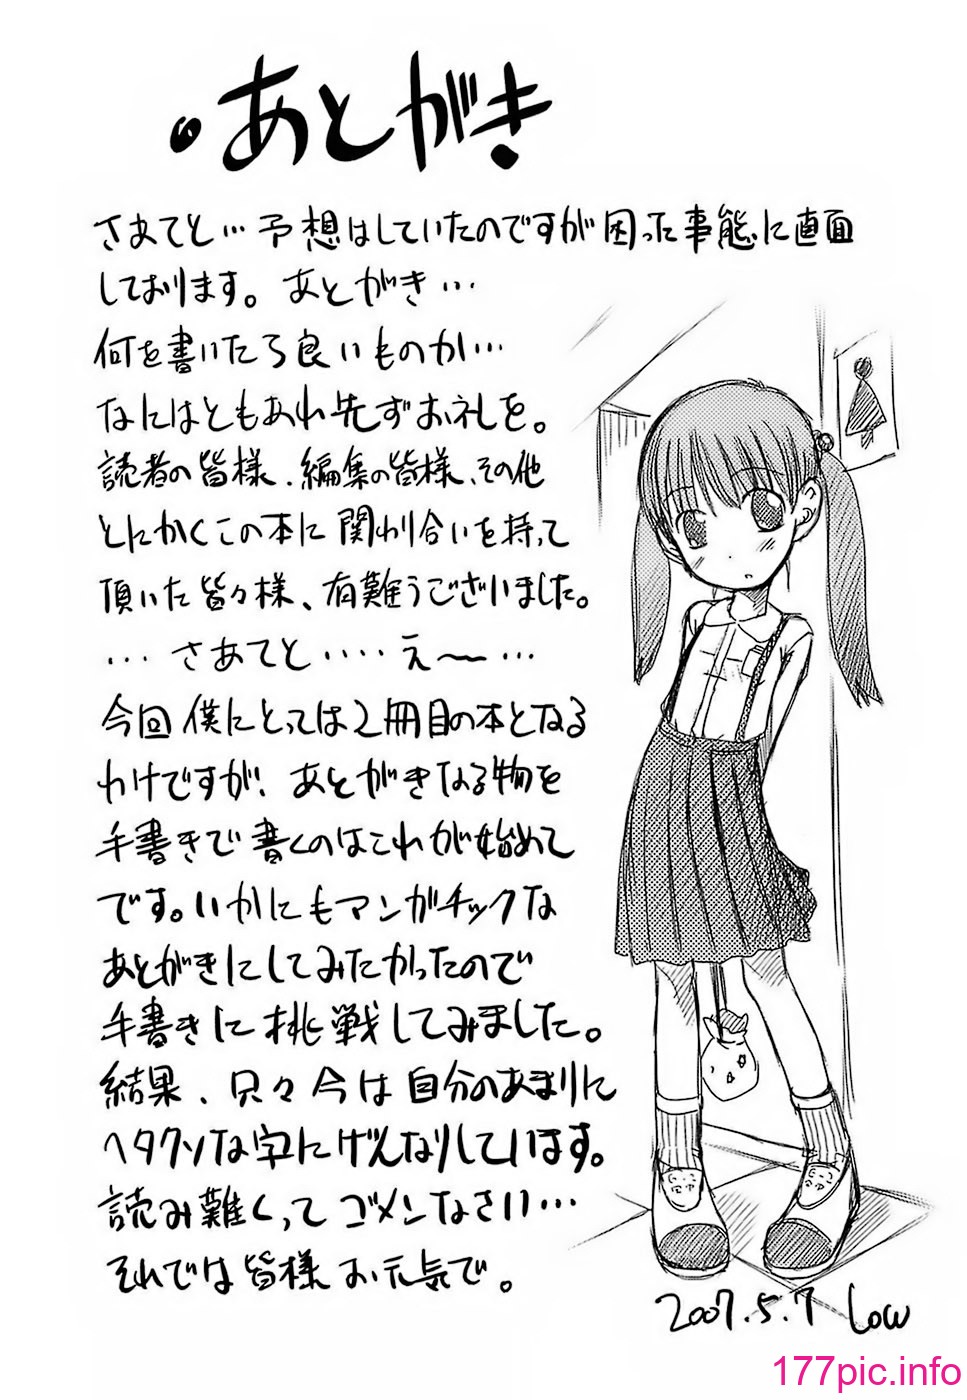 あとがき
さあてと…予想はしていたのですが困った事態に直面
しております。あとがき…
何を書いたら良いものか…
なにはともあれ先ずお礼を。
読者の皆様、編集の皆様、その他
とにかくこの本に関わり合いを持って
頂いた皆々様、有難うございました。
…さあてと‥‥え〜…
今回僕にとっては2冊目の本となる
わけですが、あとがきなる物を
手書きで書くのはこれが始めて
です。いかにもマンガチックな
あとがきにしてみたかったので
手書きに挑戦してみました。
結果、只々今は自分のあまりに
ヘタクソな字にげんなりしています。
読み難くってゴメンなさい…
それでは皆様お元気で。
2007.5.7 Low
177pic.info